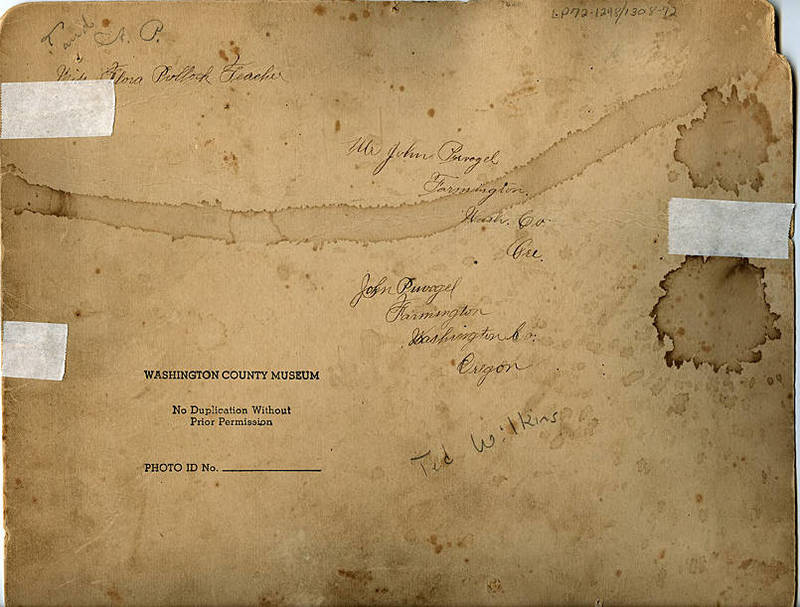 LP72-1298/1308-72
A. P.
Flora Pollock Teacher
Mr John Pruvogel
Farmington
Wash. Co
Ore.
John Pruvogel
Farmington
Washington Co.
Oregon
Ted Wilkins
WASHINGTON COUNTY MUSEUM
No Duplication Without
Prior Permission
PHOTO ID No.